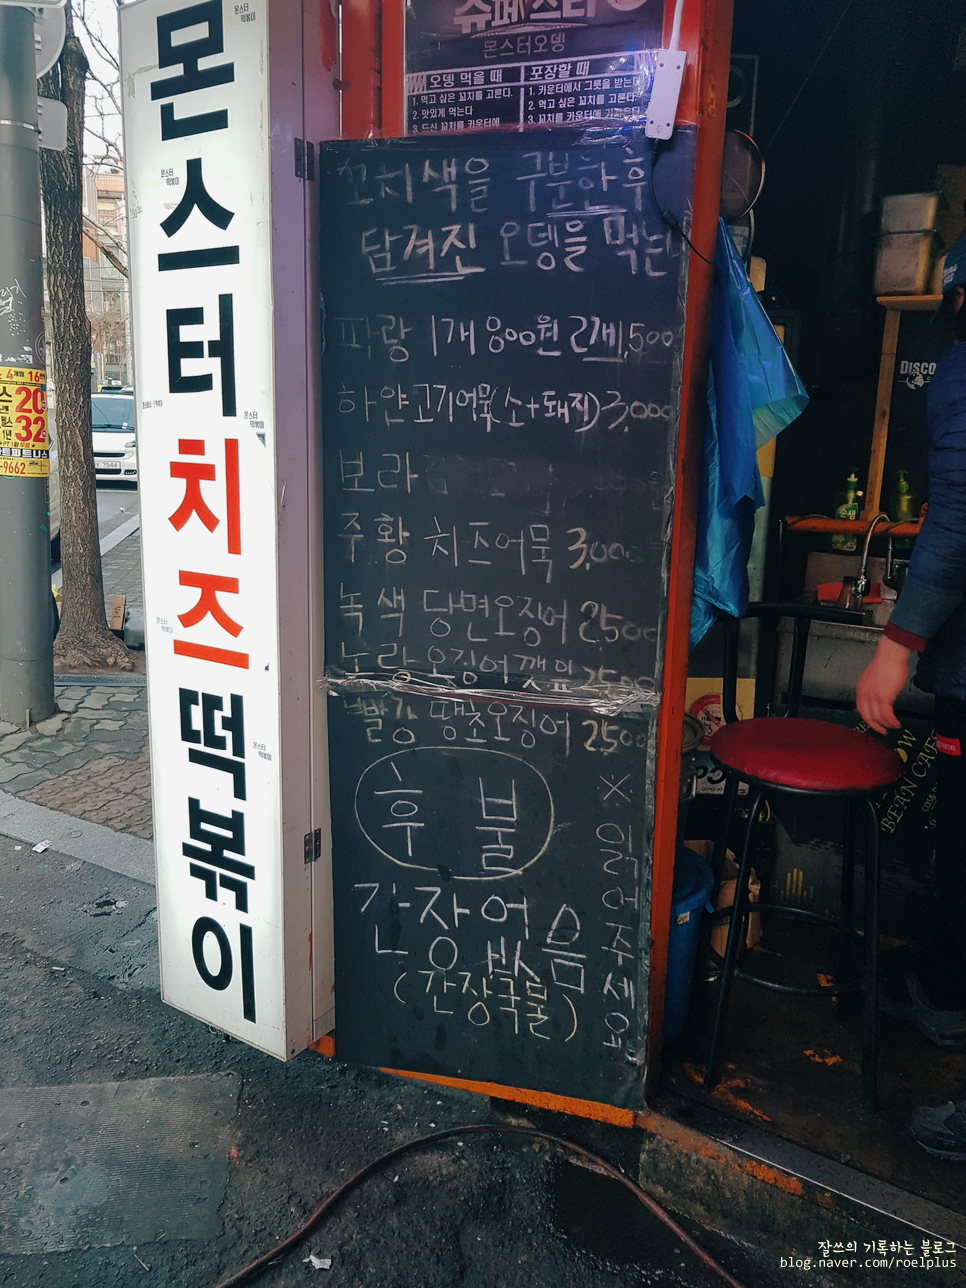 몬스터치즈떡볶이
슈퍼스타
몬스터오뎅
오뎅 먹을 때
1. 먹고 싶은 꼬치를 고른다.
2. 맛있게 먹는다
3. 드신 꼬치를 카운터에
포장할 때
1. 카운터에서 그릇을 받는다
2. 먹고 싶은 꼬치를 고른다.
3. 꼬치를 카운터에
꼬치색을 구분한후
담겨진 오뎅을 먹는다
파랑 1개 800원 2개 1,500
하얀 고기어묵(소+돼지) 3,000
보라
주황 치즈어묵 3,000
녹색 당면오징어 2,500
노랑 오징어깻잎 2500
빨강 땡초오징어 2,500
후불
간장어묵
(간장국물)
※읽어주세요
4개월 16만
20
32
1년
-9662
7544
DISCO
순샘
BEAN CAFE
잘쓰의 기록하는 블로그
blog.naver.com/roelplus